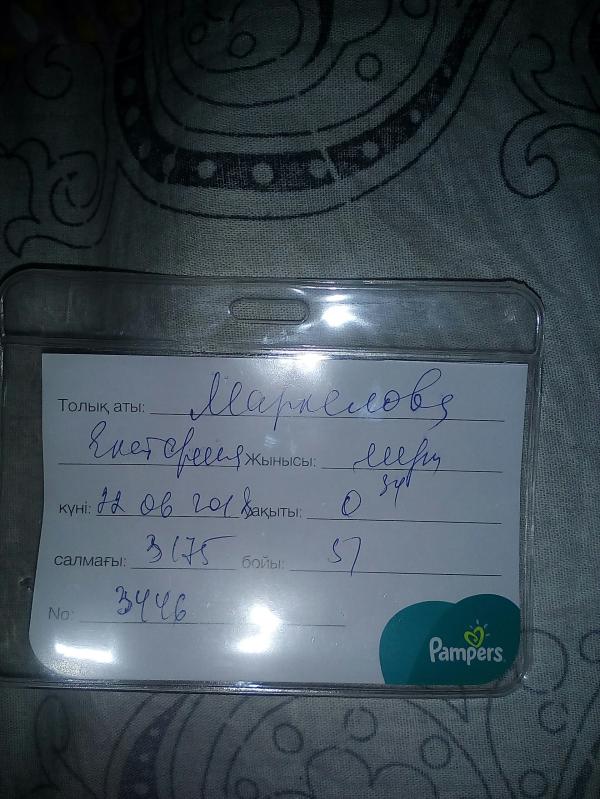 Толық аты: Маркелова
Екатерина Жынысы:
күні: 22 06 2018 уақыты: 0 34
салмағы: 3175 бойы: 51
No: 3446
Pampers